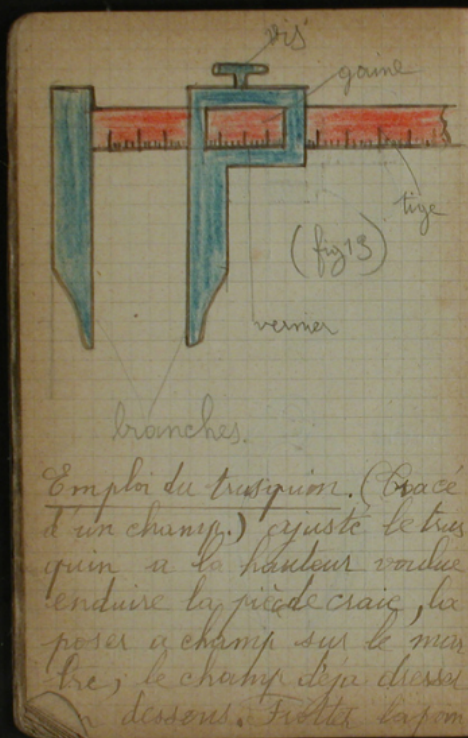 vis
gaine
tige
(fig 13)
vernier
branches.
Emploi du trusquin. (Tracé
d'un champ.) ajusté le trus
quin a la hauteur voulue
enduire la pièce de craie, la
poser a champ sur le mar
bre, le champ déja dresser
dessous. Frotter la poin